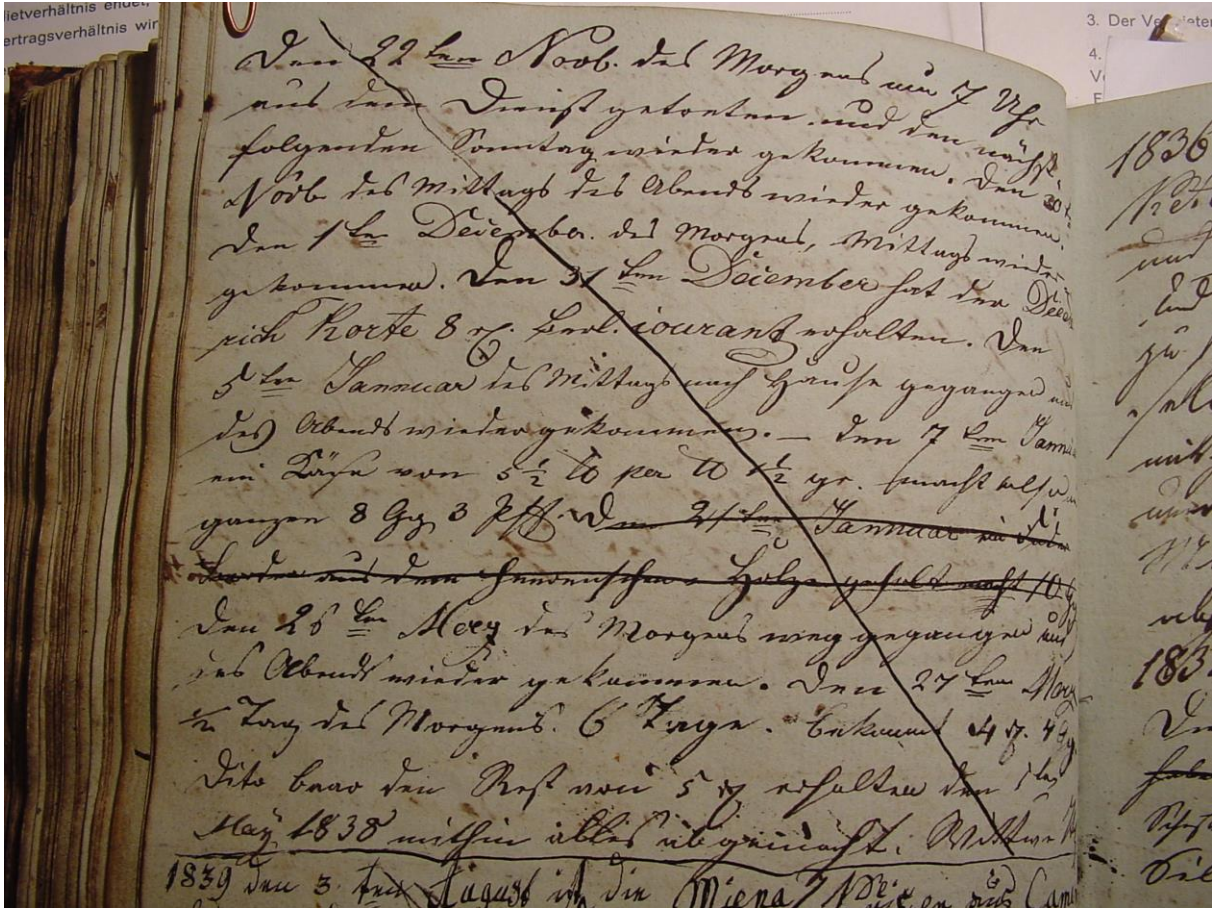 ietverhältnis endet,
ertragsverhältnis wir
3. Der Ve ieter
4.
Den 22 ten Novb. des Morgens um 7 Uhr
aus dem Dienst getreten und den nächst
folgenden Sonntag wieder gekommen. Den 30 t
Novb des Mittags des Abends wieder gekommen.
Den 1 ten December. des Morgens, Mittags wieder
gekommen. Den 31 ten December hat der Died
rich Korte 8 rt. Berl. courant erhalten. Den
5 ten Jannuar des Mittags nach Hause gegangen und
des Abends wieder gekommen. — Den 7 ten Jannu
ein Käse von 5 ½ per 1 ½ gr. macht also
ganzen 8 Ggr 3 Pf. Den 21 ten Jannuar ein
aus dem Holze geholt macht 10
Den 25 ten Merz des Morgens weg gegangen und
des Abends wieder gekommen. Den 27 ten Merz
½ Tag des Morgens. 6 Tage. bekommt 4 rt. 4 Gg
Dito baar den Rest von 5 rt erhalten den 1 ten
May 1838 mithin alles abgemacht. Wittwe
1839 den 3. ten August ist die aus
1836
und
zu
183